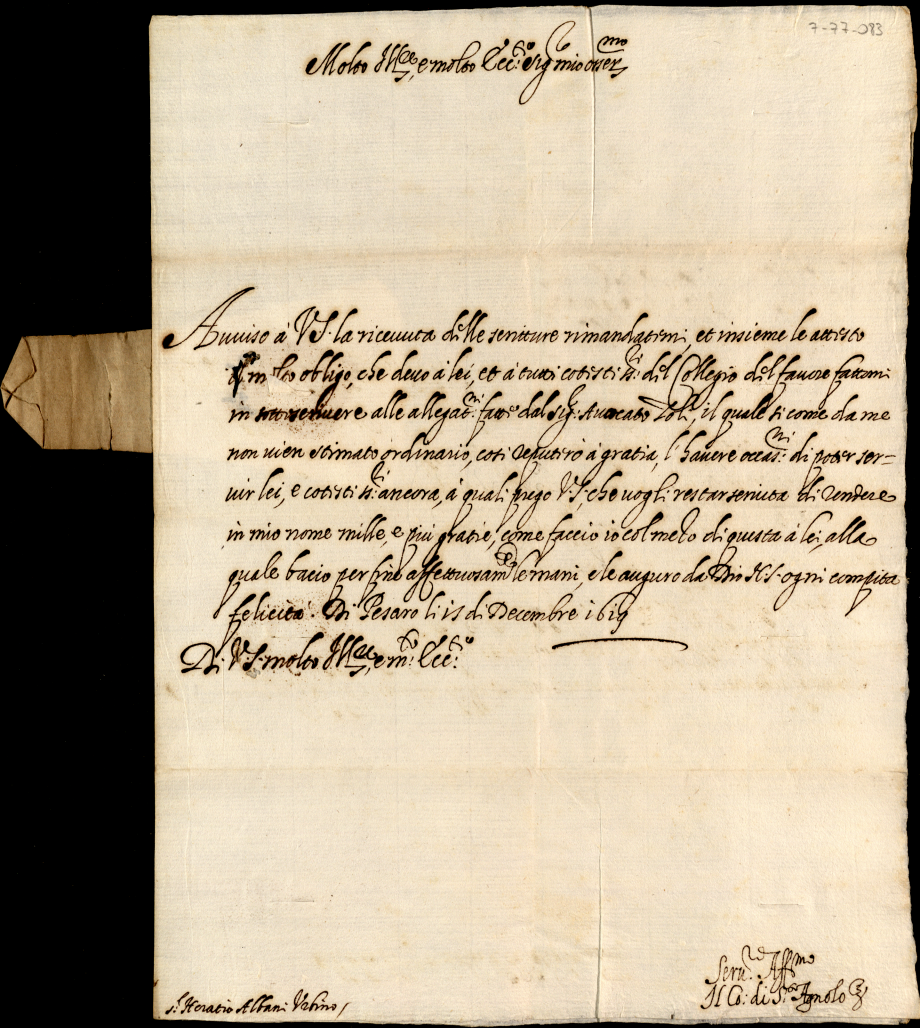 7-77-083
Molto Ill.re, e molto Ecc.te Sig. mio oss.mo
Avviso à V.S. la ricevuta delle scritture rimandatemi, et insieme le attesto
il molto obligo, che devo à lei, et à tutti cotesti SS.ri del Collegio del favore fattomi
in sottoscrivere alle allegat.ni fatte dal Sig.r Avocato, il quale si come da me
non vien stimato ordinario, così reputerò à gratia, l'havere occas.ni di poter ser=
vir lei, e cotesti SS.ri ancora, à quali prego V.S., che vogli restar servita di rendere
in mio nome mille, e più gratie, come faccio io col mezo di questa à lei, alla
quale bacio per fine affettuosam.te le mani, e le auguro da Dio N.S. ogni compita
felicità. Di Pesaro li 15 di Decembre 1619
Di V.S. molto Ill.re, e m.to Ecc.te
Serv.re Aff.mo
Il Co: di S.t Agnolo
S.r Horatio Albani Urbino